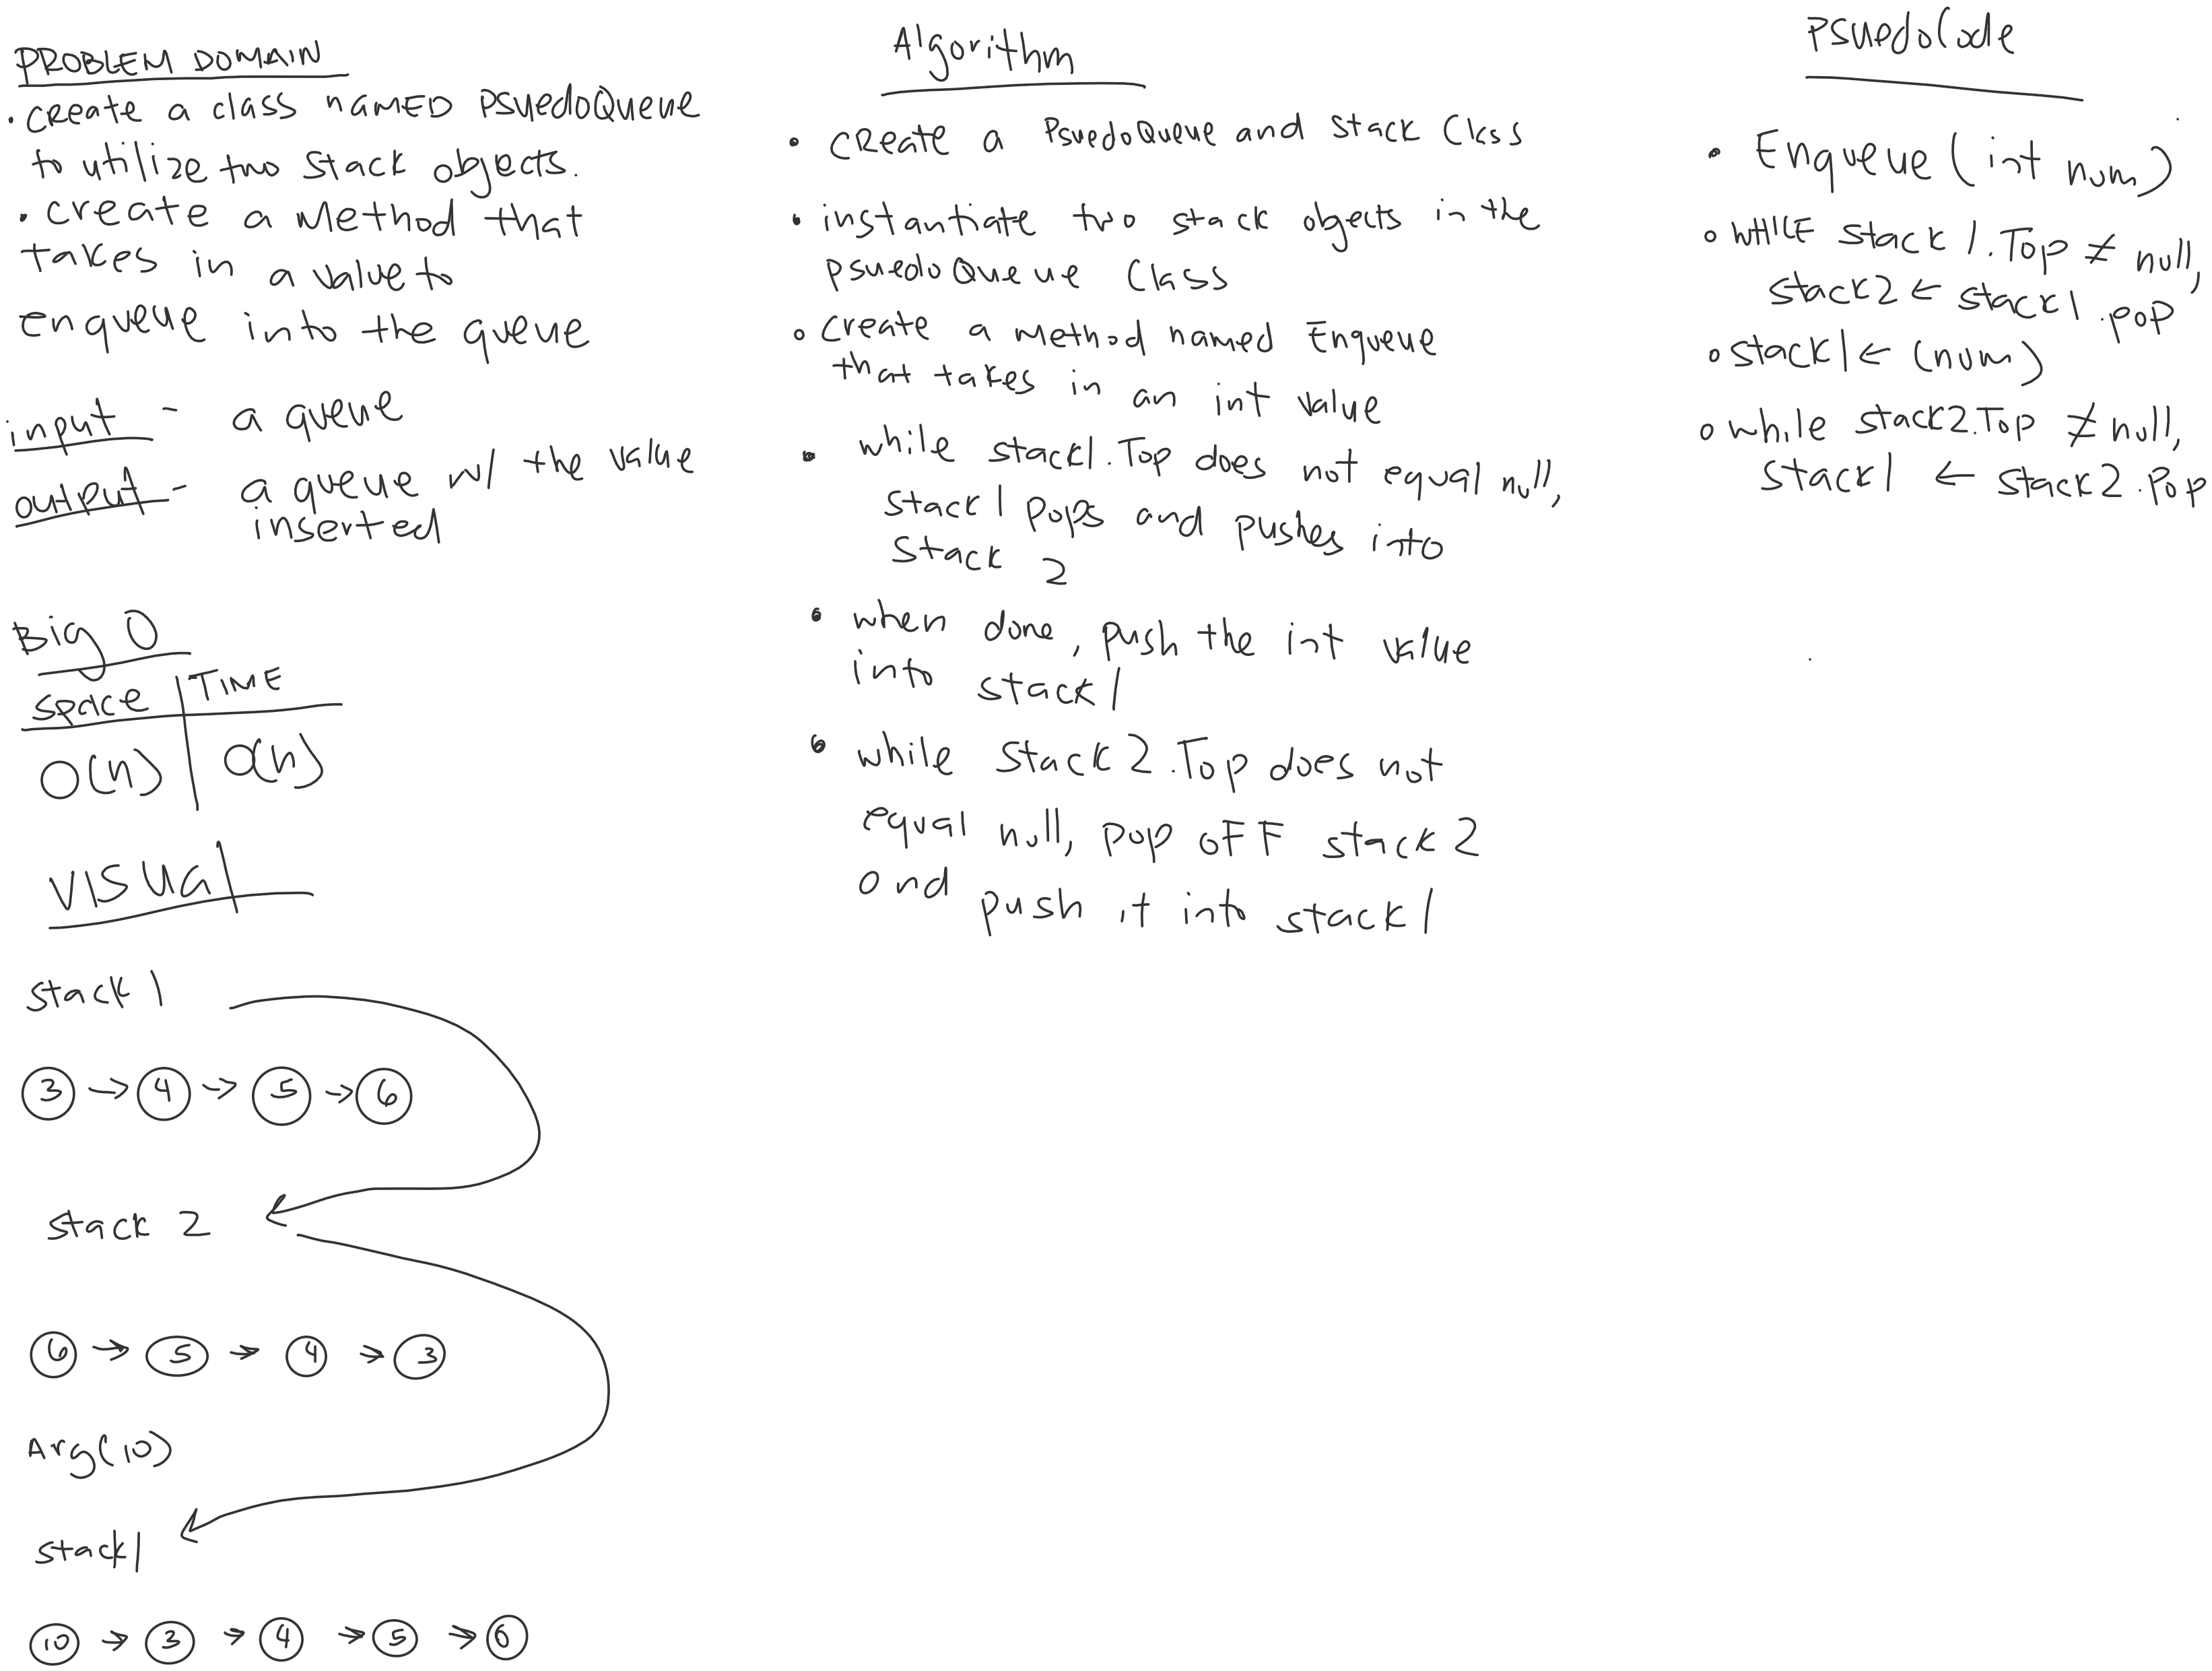 PROBLEM DOMAIN
• create a class namED PSuedoQueue
to utilize two stack objects.
• create a Method that
takes in a value to
Enqueue into the queue
input - a queue
output - a queue w/ the value
inserted
Big O
space | TIME
O(n) | O(n)
VISUal
stack 1
3 → 4 → 5 → 6
stack 2
6 → 5 → 4 → 3
Arg(10)
stack1
10 → 3 → 4 → 5 → 6
Algorithm
• create a PsuedoQueue and stack Class
• instantiate two stack objects in the
PsuedoQueue Class
• create a method named Enqueue
that takes in an int value
• while stack1.Top does not equal null,
stack1 pops and pushes into
stack 2
• when done, push the int value
into stack1
• while stack2.Top does not
equal null, pop oFF stack2
and push it into stack1
PSuedoCode
• Enqueue (int num)
• WHILE stack1.Top ≠ null,
stack2 ← stack1.pop
• stack1 ← (num)
• while stack2.Top ≠ null,
stack1 ← stack2.Pop